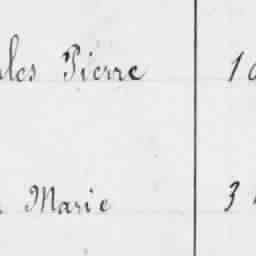 Pierre 1
Marie 3